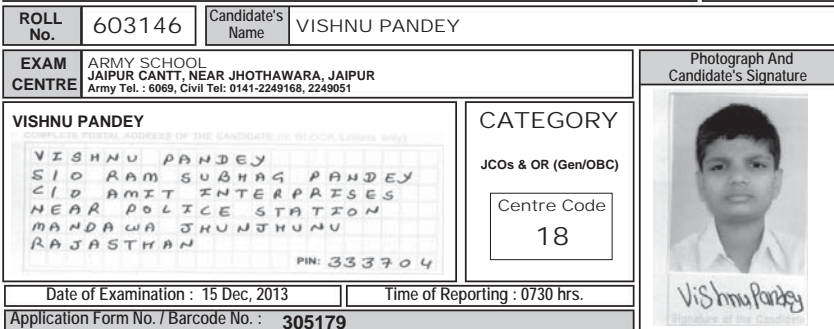 ROLL No.
603146
Candidate's Name
VISHNU PANDEY
EXAM CENTRE
ARMY SCHOOL
JAIPUR CANTT, NEAR JHOTHAWARA, JAIPUR
Army Tel. : 6069, Civil Tel: 0141-2249168, 2249051
Photograph And
Candidate's Signature
VISHNU PANDEY
COMPLETE POSTAL ADDRESS OF THE CANDIDATE (in BLOCK Letters only)
VISHNU PANDEY
S/O RAM SUBHAG PANDEY
C/O AMIT INTERPRISES
NEAR POLICE STATION
MANDAWA JHUNJHUNU
RAJASTHAN
PIN: 333704
CATEGORY
JCOs & OR (Gen/OBC)
Centre Code
18
Vishnu Pandey
Signature of the Candidate
Date of Examination : 15 Dec, 2013
Time of Reporting : 0730 hrs.
Application Form No. / Barcode No. : 305179